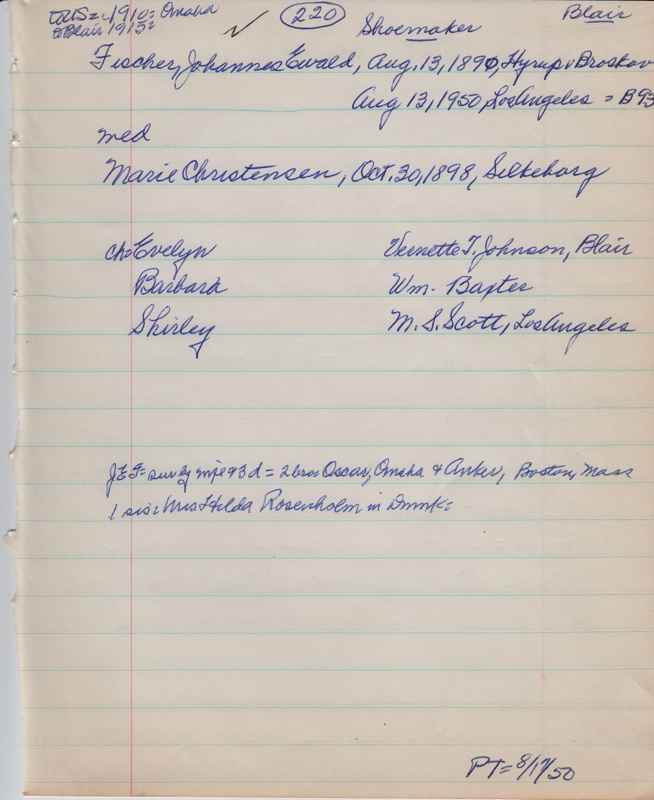 to US = 1910 = Omaha
to Blair 1915 =
220
Shoemaker
Blair
Fischer, Johannes Ewald, Aug. 13, 1890, Hyrup v Broskov
Aug 13, 1950, Los Angeles = B 93
med
Marie Christensen, Oct. 30, 1898, Silkeborg
ch = Evelyn Vernette T. Johnson, Blair
Barbara Wm. Baxter
Shirley M. S. Scott, Los Angeles
JEF = surv by wife & 3 d = 2 bro = Oscar, Omaha & Anker, Boston, Mass
1 sis = Mrs Hilda Rosenholm in Dnmk =
PT = 8/17/50